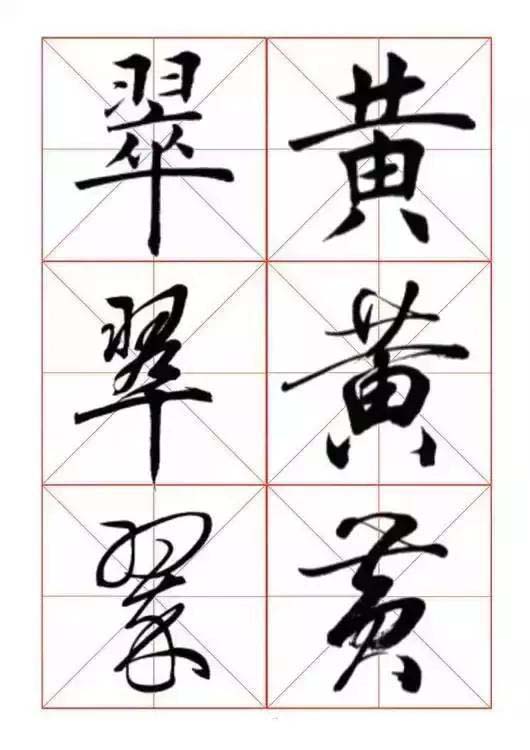 黄翠
黄翠
黄翠